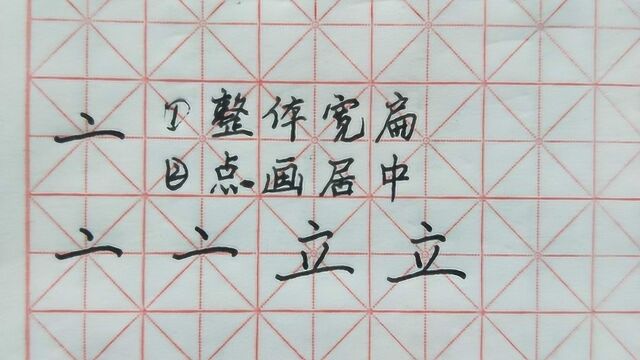 亠 ①整体宽扁
②点画居中
亠 亠 立 立